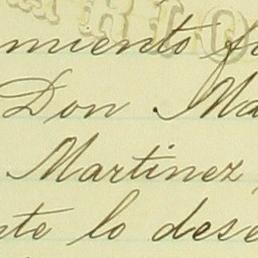 miento
Don Ma
Martinez
te lo dese